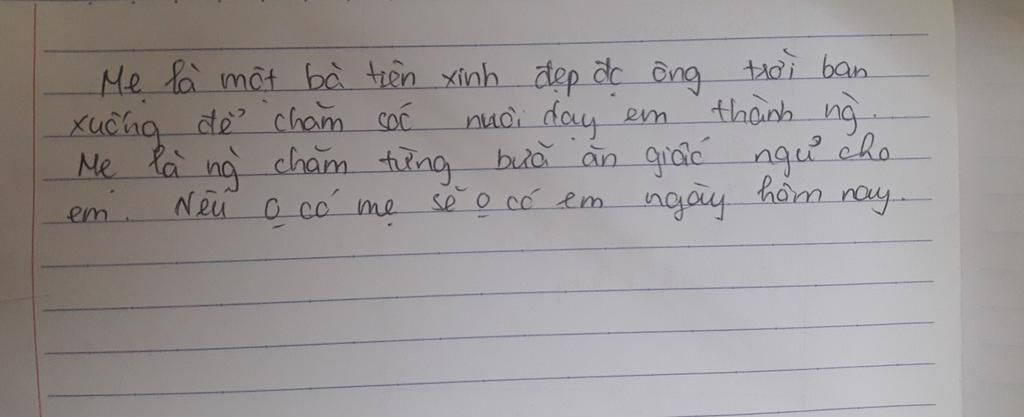 Mẹ là một bà tiên xinh đẹp đc ông trời ban
xuống để chăm sóc nuôi dạy em thành ng`.
Mẹ là ng` chăm từng bữa ăn giấc ngủ cho
em. Nếu o có mẹ sẽ o có em ngày hôm nay.